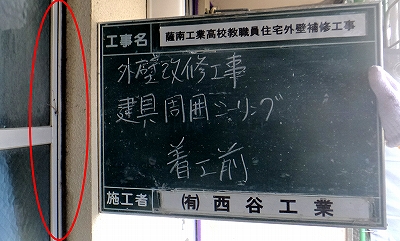 工事名 薩南工業高校教職員住宅外壁補修工事
外壁改修工事
建具周囲シーリング
着工前
施工者 ㈲西谷工業